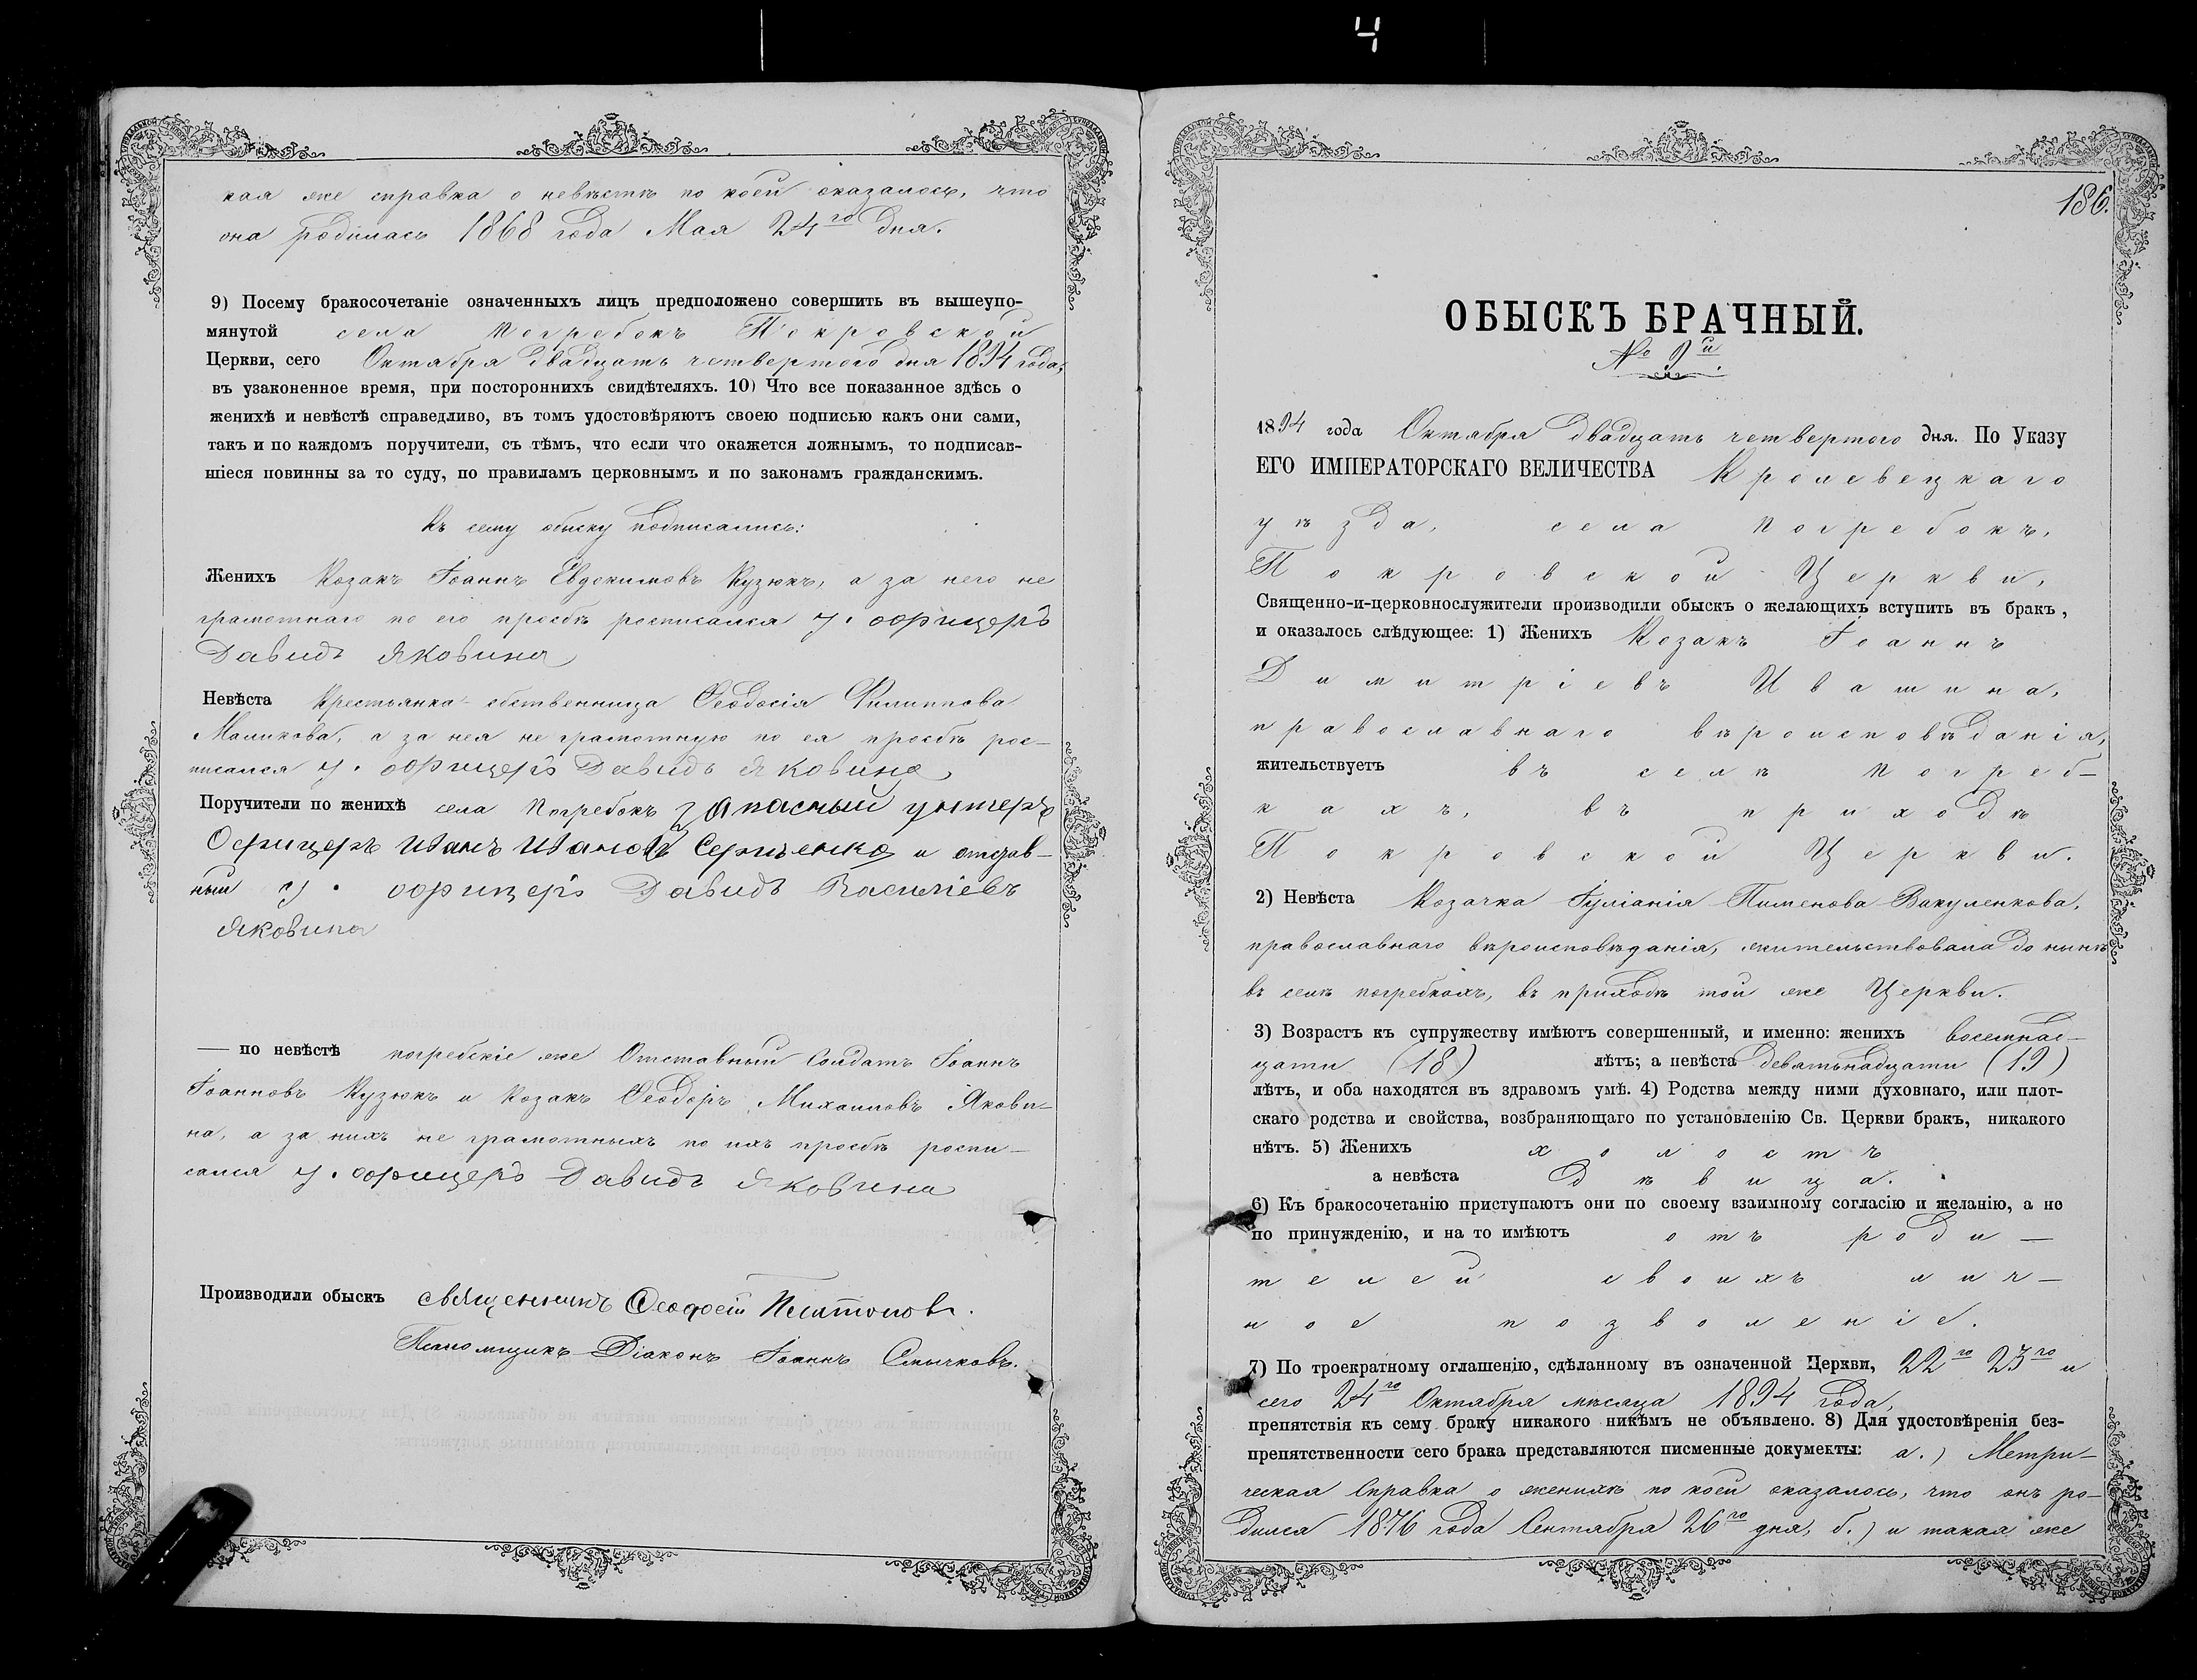 4
кая же справка о невѣстѣ по коей оказалось, что
она родилась 1868 года Мая 24го дня.
9) Посему бракосочетаніе означенныхъ лицъ предположено совершить въ вышеупо-
мянутой села Погребокъ Покровской
Церкви, сего Октября двадцать четвертого дня 1894 года,
въ узаконенное время, при постороннихъ свидѣтеляхъ. 10) Что все показанное здѣсь о
женихѣ и невѣстѣ справедливо, въ томъ удостовѣряютъ своею подписью какъ они сами,
такъ и по каждомъ поручители, съ тѣмъ, что если что окажется ложнымъ, то подписав-
шіеся повинны за то суду, по правиламъ церковнымъ и по законамъ гражданскимъ.
Къ сему обыску подписались:
Женихъ Козакъ Іоаннъ Евдокимовъ Кузюкъ, а за него не
грамотнаго по его просбѣ росписался у. офицеръ
Давидъ Яковина
Невѣста Крестьянка-собственница Ѳеодосія Филиппова
Маликова, а за нея не грамотную по ея просбѣ рос-
писался у. офицеръ Давидъ Яковина
Поручители по женихѣ села Погребокъ запасный унтеръ
Офицеръ Иванъ Ивановъ Сергіенко и отстав-
ный у. офицеръ Давидъ Василіевъ
Яковина
— по невѣстѣ погребскіе же Отставный Солдатъ Іоаннъ
Іоанновъ Кузюкъ и Козакъ Ѳеодоръ Михаиловъ Якови-
на, а за нихъ не грамотныхъ по ихъ просбѣ роспи-
сался у. офицеръ Давидъ Яковина
Производили обыскъ священникъ Ѳеодосій Платоновъ.
Псаломщикъ-Діаконъ Іоаннъ Смычковъ.
186.
ОБЫСКЪ БРАЧНЫЙ.
№ 9й.
1894 года Октября двадцать четвертого дня. По Указу
ЕГО ИМПЕРАТОРСКАГО ВЕЛИЧЕСТВА Кролевецкаго
уѣзда, села Погребокъ,
Покровской Церкви,
Священно-и-церковнослужители производили обыскъ о желающихъ вступить въ бракъ,
и оказалось слѣдующее: 1) Женихъ Козакъ Іоаннъ
Димитріевъ Ивашина,
православнаго вѣроисповѣданія,
жительствуетъ въ селѣ Погреб-
кахъ, въ приходѣ
Покровской Церкви.
2) Невѣста Козачка Іуліанія Пименова Вакуленкова,
православнаго вѣроисповѣданія, жительствовала до нынѣ
въ селѣ погребкахъ, въ приходѣ той же Церкви.
3) Возрастъ къ супружеству имѣютъ совершенный, и именно: женихъ восемнад-
цати (18) лѣтъ; а невѣста девятьнадцати (19)
лѣтъ, и оба находятся въ здравомъ умѣ. 4) Родства между ними духовнаго, или плот-
скаго родства и свойства, возбраняющаго по установленію Св. Церкви бракъ, никакого
нѣтъ. 5) Женихъ холостъ
а невѣста дѣвица.
6) Къ бракосочетанію приступаютъ они по своему взаимному согласію и желанію, а не
по принужденію, и на то имѣютъ отъ роди-
телей своихъ лич-
ное позволеніе.
7) По троекратному оглашенію, сдѣланному въ означенной Церкви, 22го 23го и
сего 24го Октября мѣсяца 1894 года,
препятствія къ сему браку никакого никѣмъ не объявлено. 8) Для удостовѣренія без-
препятственности сего брака представляются писменные документы: а.) Метри-
ческая Справка о женихѣ по коей оказалось, что онъ ро-
дился 1876 года Сентября 26го дня, б.) и такая же